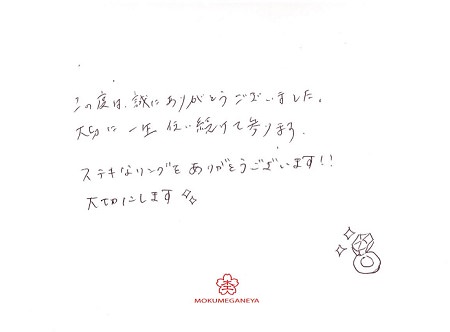 この度は、誠にありがとうございました。
大切に一生使い続けて参ります。
ステキなリングをありがとうございます!!
大切にします
MOKUMEGANEYA